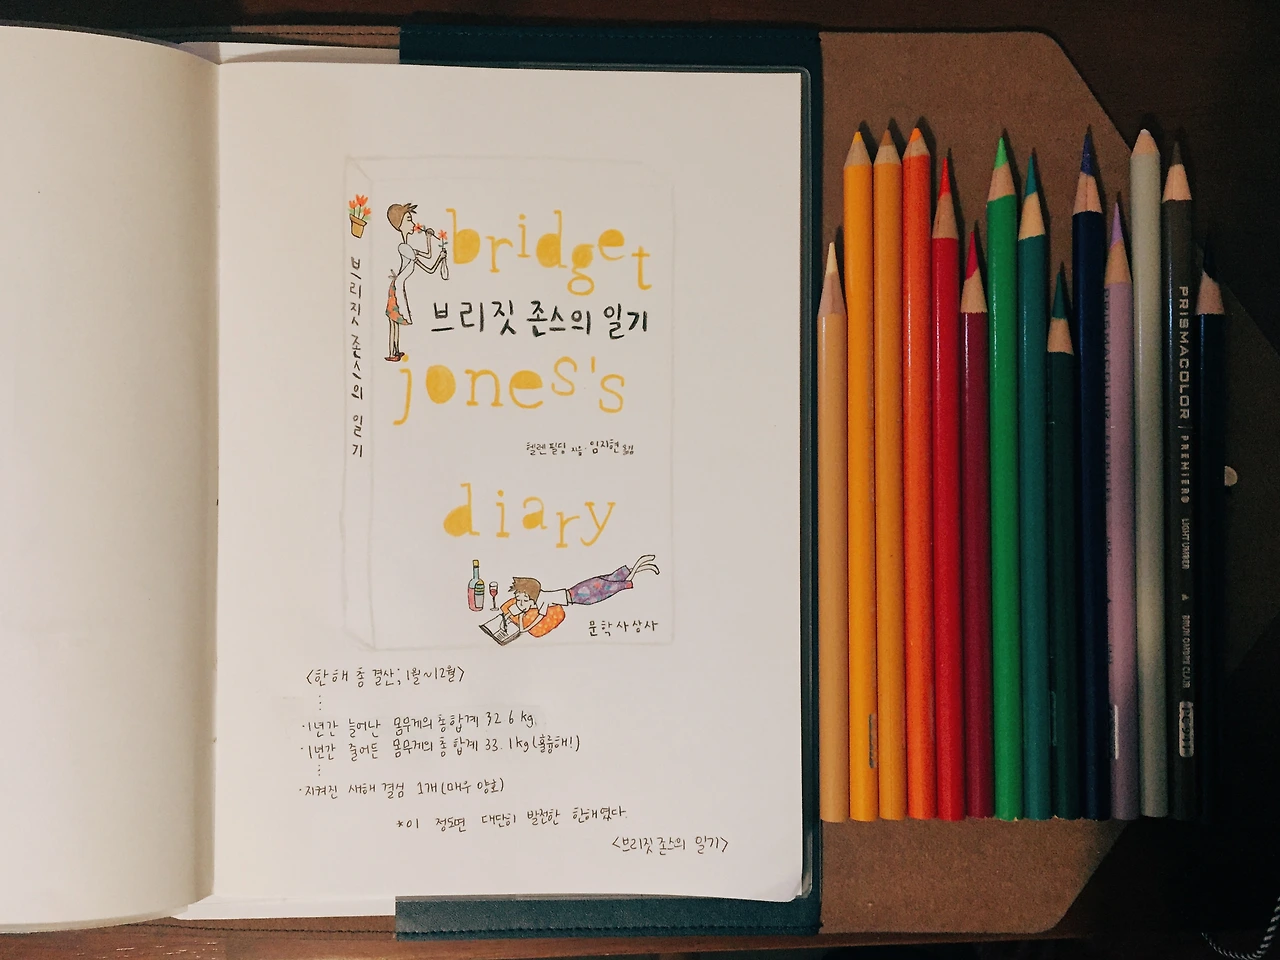 브리짓 존스의 일기
bridget
브리짓 존스의 일기
jones's
헬렌 필딩 지음·임지현 옮김
diary
문학사상사
<한해 총 결산; 1월~12월>
⋮
·1년간 늘어난 몸무게의 총합계 32.6kg.
·1년간 줄어든 몸무게의 총합계 33.1kg(훌륭해!)
⋮
·지켜진 새해 결심 1개(매우 양호)
*이 정도면 대단히 발전한 한해였다.
<브리짓 존스의 일기>
PRISMACOLOR | PREMIER® LIGHT UMBER ▲ BRUN OMBRE CLAIR PC941